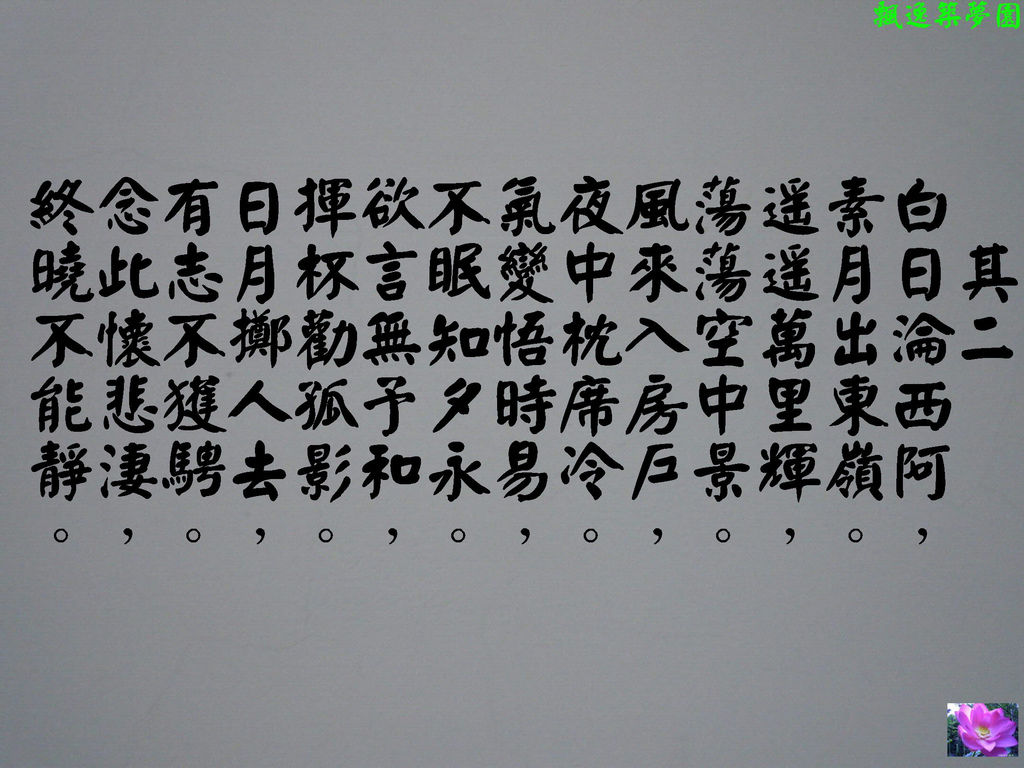 飄逸築夢園
其二
白日淪西阿，
素月出東嶺。
遥遥萬里輝，
蕩蕩空中景。
風來入房戶，
夜中枕席冷。
氣變悟時易，
不眠知夕永。
欲言無予和，
揮杯勸孤影。
日月擲人去，
有志不獲騁。
念此懷悲淒，
終曉不能靜。